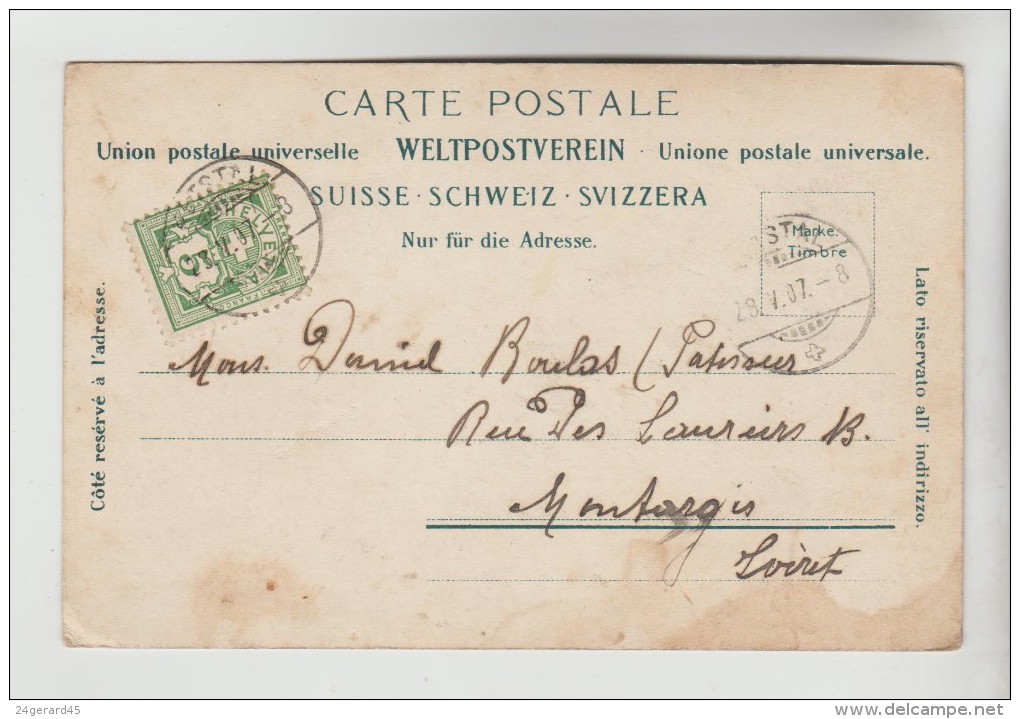 CARTE POSTALE
Union postale universelle WELTPOSTVEREIN · Unione postale universale.
SUISSE · SCHWEIZ · SVIZZERA
Nur für die Adresse.
Marke.
Timbre
HELVETIA
5
FRANCO
28.V.07.-8
Côté resérvé à l'adresse.
Lato riservato all' indirizzo.
Mons. Daniel Boulas
Rue Des Lauriers
Montargis
Loiret
24gerard45
www.delcampe.net